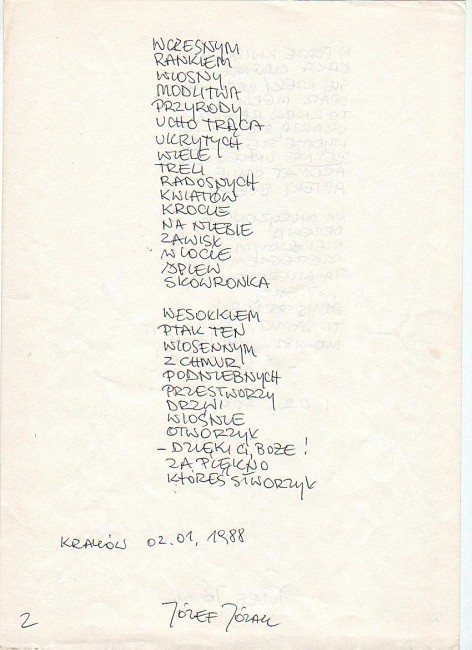 WCZESNYM
RANKIEM
WIOSNY
MODLITWA
PRZYRODY
UCHO TRĄCA
UKRYTYCH
WIELE
TRELI
RADOSNYCH
KWIATÓW
KROCIE
NA NIEBIE
ZAWISŁ
W LOCIE
ŚPIEW
SKOWRONKA
WESOŁKIEM
PTAK TEN
WIOSENNYM
Z CHMUR
PODNIEBNYCH
PRZESTWORZY
DRZWI
WIOŚNIE
OTWORZYŁ
– DZIĘKI CI, BOŻE!
ZA PIĘKNO
KTÓREŚ STWORZYŁ
KRAKÓW 02.01.1988
2
JÓZEF